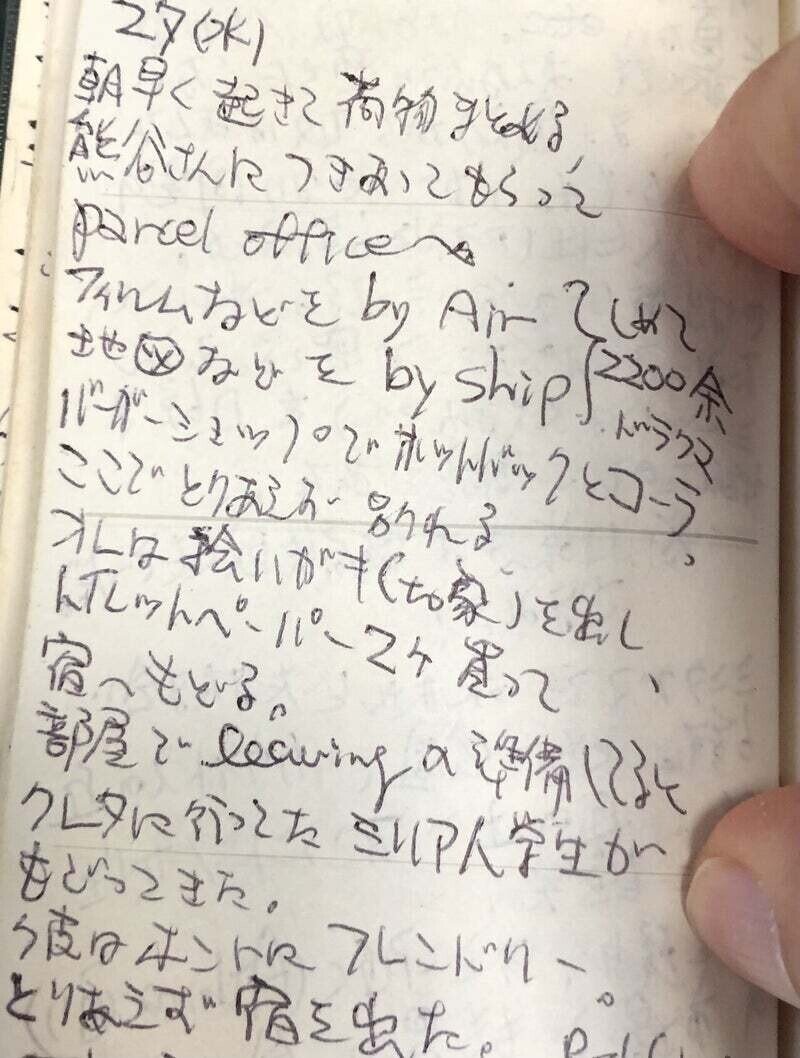 27(水)
朝早く起きて荷物まとめる、
熊谷さんにつきあってもらって
parcel officeへ
フィルムなどを by Air でしめて
地図などを by ship 2200余
ドラクマ
バーガーショップでホットドックとコーラ、
ここでとりあえず別れる
オレは絵ハガキ(to家)を出し
トイレットペーパー2ケ買って、
宿へもどる。
部屋でleavingの準備してると
クレタに行ってたシリア人学生が
もどってきた。
彼はホントにフレンドリー。
とりあえず宿を出た。